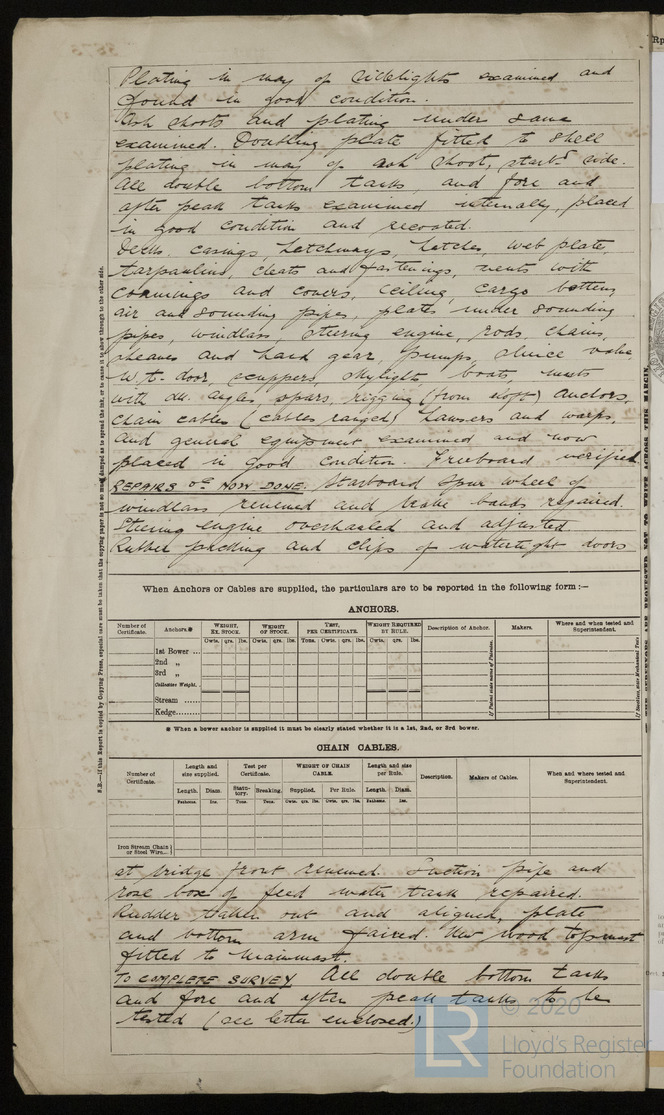 Plating in way of sidelights examined and
found in good condition.
Ash shoots and plating under same
examined. Doubling plate fitted to shell
plating in way of ash shoot, starbd side.
All double bottom tanks, and fore and
after peak tanks examined internally, placed
in good condition and recoated.
Decks, casings, hatchways, hatches, web plate,
tarpaulins, cleats and fastenings, vents with
coamings and covers, ceiling, cargo battens
air and sounding pipes, plates under sounding
pipes, windlass, steering engine, rods chains,
sheaves and hand gear, pumps, sluice valve
W.T. door, scuppers, skylights, boats, masts
with angles spars, rigging (from aloft) anchors,
chain cables (cables ranged) hawsers and warps,
and general equipment examined and now
placed in good condition. Freeboard verified
REPAIRS &c NOW DONE. Starboard spur wheel of
windlass renewed and brake bands repaired.
Steering engine overhauled and adjusted
Rubber packing and clips of watertight doors
When Anchors or Cables are supplied, the particulars are to be reported in the following form :—
ANCHORS.
Number of Certificate. Anchors.* WEIGHT, EX. STOCK. WEIGHT OF STOCK. TEST, PER CERTIFICATE. WEIGHT REQUIRED BY RULE. Description of Anchor. Makers. Where and when tested and Superintendent.
Cwts. qrs. lbs. Cwts. qrs. lbs. Tons. Cwts. qrs. lbs. Cwts. qrs. lbs.
1st Bower ...
2nd „
3rd „
Collective Weight.
Stream ......
Kedge.........
* When a bower anchor is supplied it must be clearly stated whether it is a 1st, 2nd, or 3rd bower.
CHAIN CABLES.
Number of Certificate. Length and size supplied. Test per Certificate. WEIGHT OF CHAIN CABLE. Length and size per Rule. Description. Makers of Cables. When and where tested and Superintendent.
Length. Diam. Statutory. Breaking. Supplied. Per Rule. Length. Diam.
Fathoms. Ins. Tons. Tons. Cwts. qrs. lbs. Cwts. qrs. lbs. Fathoms. Ins.
Iron Stream Chain or Steel Wire...
at bridge front renewed. Suction pipe and
rose box of feed water tank repaired.
Rudder taken out and aligned, plate
and bottom arm faired. New wood topmast
fitted to mainmast.
TO COMPLETE SURVEY All double bottom tanks
and fore and after peak tanks to be
tested (see letter enclosed.)
N.B.—If this Report is copied by Copying Press, especial care must be taken that the copying paper is not so much damped as to spread the ink, or to cause it to show through to the other side.
LR
© 2020
Lloyd's Register
Foundation